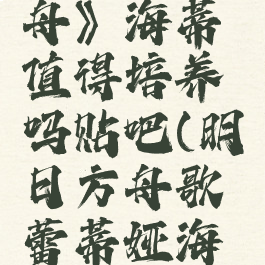 舟》海蒂
值得培养
吗贴吧(明
日方舟歌
蕾蒂娅海